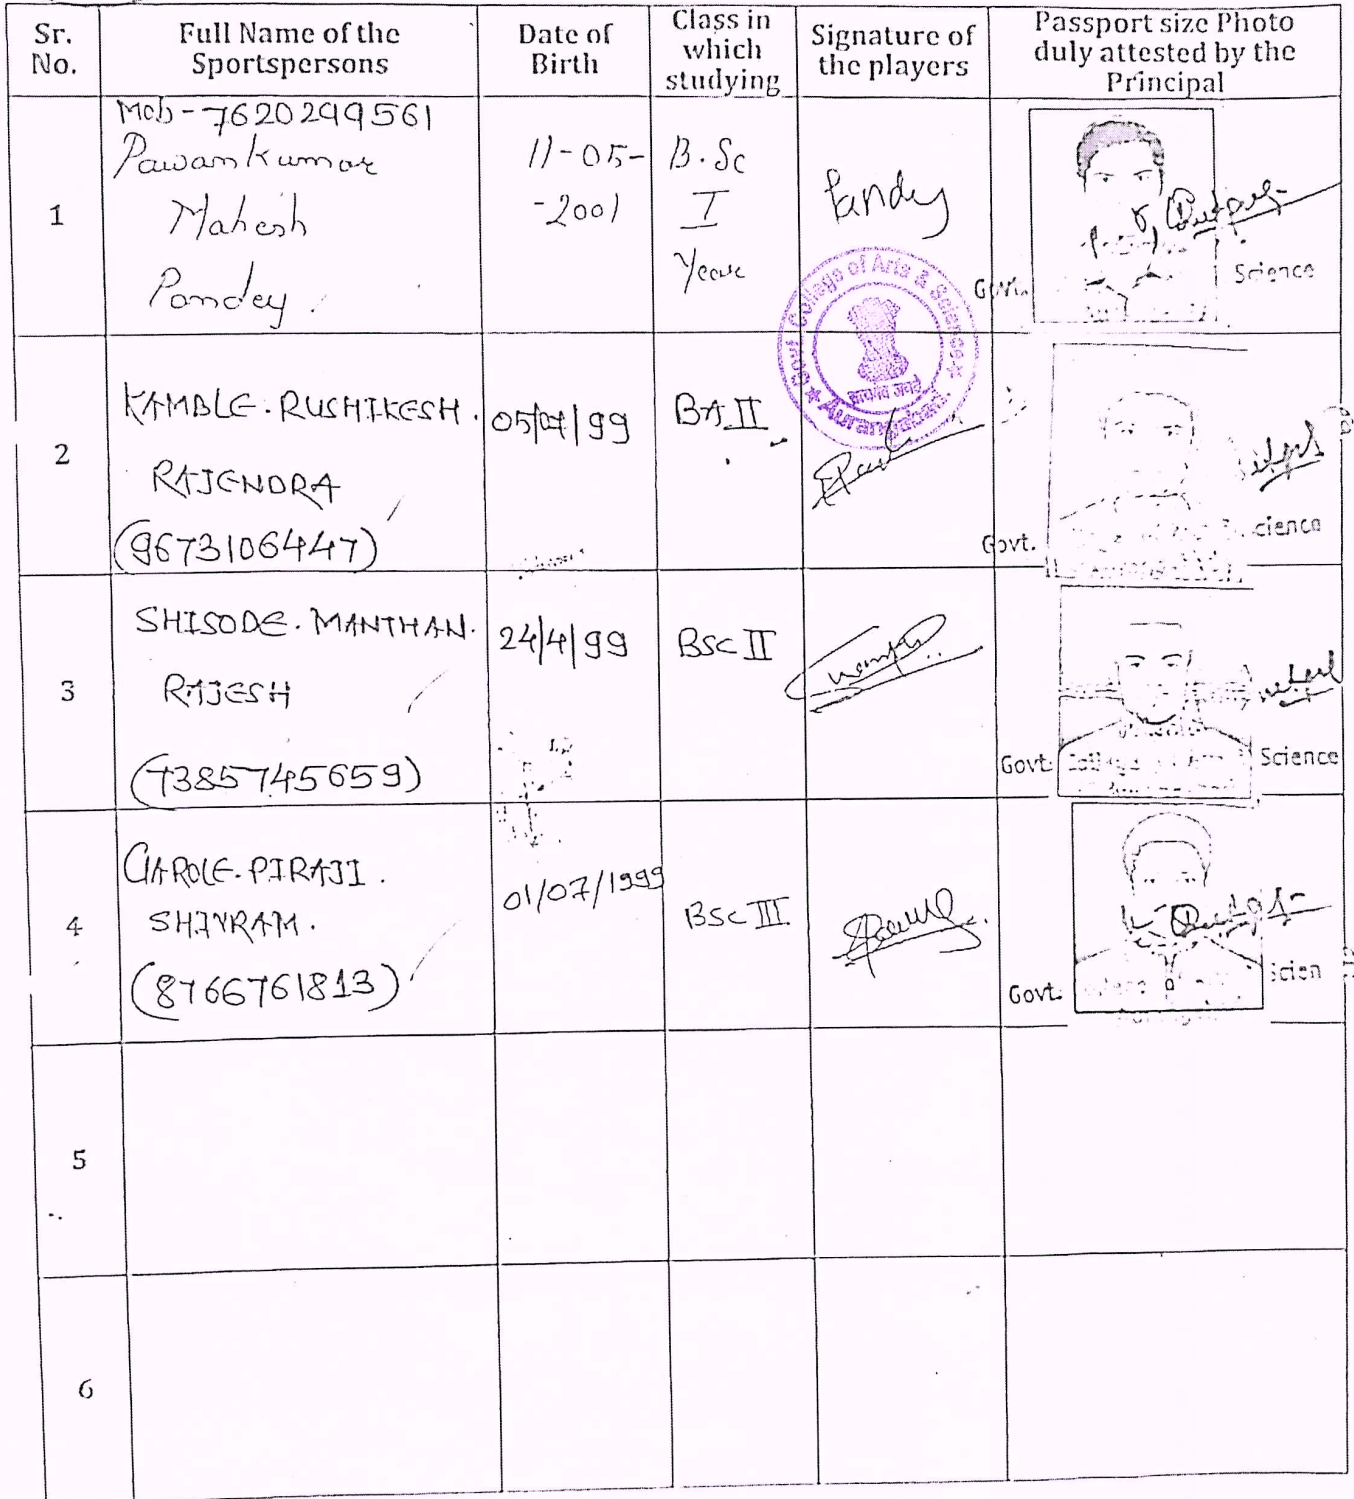 Sr. No. Full Name of the Sportspersons Date of Birth Class in which studying Signature of the players Passport size Photo duly attested by the Principal
1
Mob-7620299561
Pawankumar
Mahesh
Pandey.
11-05-
-2001
B.Sc
I
Year
Pandey
Govt. Science
Govt College of Arts & Science
Aurangabad.
2
KAMBLE. RUSHIKESH.
RAJENDRA
(9673106447)
05/07/99
BA II
Govt. Science
3
SHISODE. MANTHAN.
RAJESH
(7385745659)
24/4/99
BSC II
Govt. Science
4
GAROLE. PIRAJI.
SHIVRAM.
(8766761813)
01/07/1999
BSC III
Govt. Scien
5
6